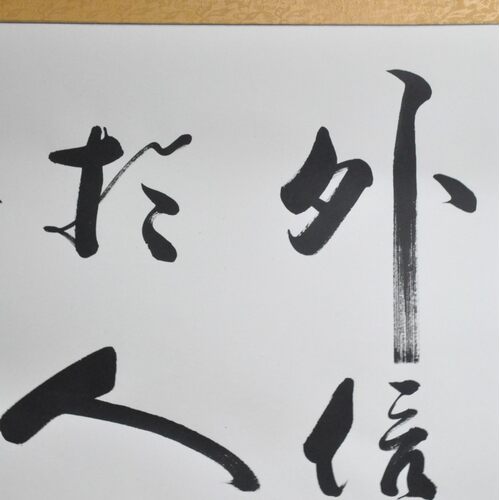 外信
於人